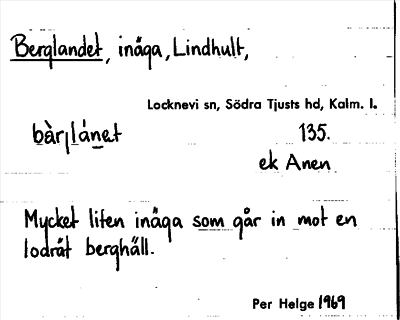 Berglandet, inäga, Lindhult,
Locknevi sn, Södra Tjusts hd, Kalm. l.
bàrj lánet 135.
ek Anen
Mycket liten inäga som går in mot en
lodrät berghäll.
Per Helge 1969